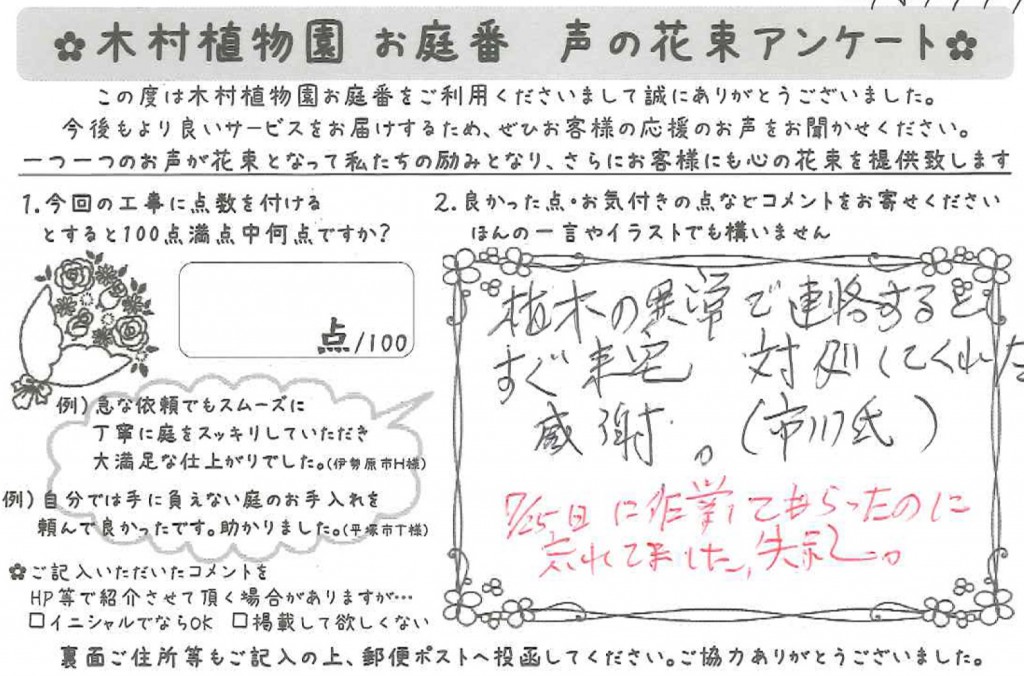 ✿木村植物園 お庭番 声の花束アンケート✿
この度は木村植物園お庭番をご利用くださいまして誠にありがとうございました。
今後もより良いサービスをお届けするため、ぜひお客様の応援のお声をお聞かせください。
一つ一つのお声が花束となって私たちの励みとなり、さらにお客様にも心の花束を提供致します
1.今回の工事に点数を付ける
とすると100点満点中何点ですか?
点/100
例)急な依頼でもスムーズに
丁寧に庭をスッキリしていただき
大満足な仕上がりでした。(伊勢原市H様)
例)自分では手に負えない庭のお手入れを
頼んで良かったです。助かりました。(平塚市T様)
✿ご記入いただいたコメントを
HP等で紹介させて頂く場合がありますが…
□イニシャルでならOK □掲載して欲しくない
2.良かった点・お気付きの点などコメントをお寄せください
ほんの一言やイラストでも構いません
植木の異常で連絡すると
すぐ来宅 対処してくれた
感謝。(市川氏)
7/25日に作業してもらったのに
忘れてました、失礼。
裏面ご住所等もご記入の上、郵便ポストへ投函してください。ご協力ありがとうございました。